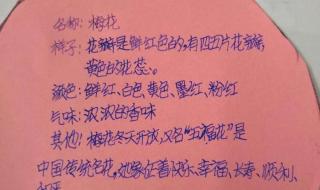 名称：梅花
样子：花瓣是鲜红色的，有四五片花瓣，
黄色的花蕊。
颜色：鲜红、白色、黄色、墨红、粉红
气味：浓浓的香味
其他：梅花冬天开放，又名“五福花”是
中国传统名花，她象征着快乐、幸福、长寿、顺利、